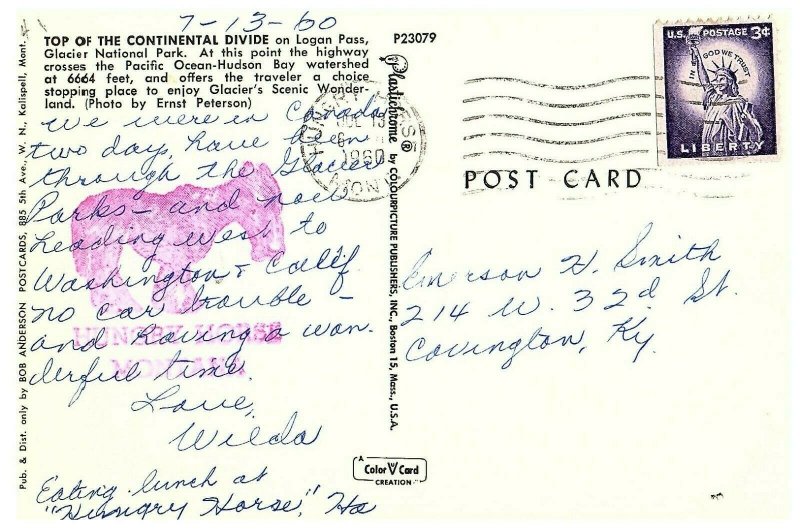 7-13-60
TOP OF THE CONTINENTAL DIVIDE on Logan Pass,
Glacier National Park. At this point the highway
crosses the Pacific Ocean-Hudson Bay watershed
at 6664 feet, and offers the traveler a choice
stopping place to enjoy Glacier's Scenic Wonder-
land. (Photo by Ernst Peterson)
We were in Canada
two day, have been
through the Glacier
Parks - and now
heading west to
Washington & Calif.
no car trouble -
and having a won-
derful time.
Love,
Wilda
Eating lunch at
"Hungry Horse," Ha
HUNGRY HORSE
MONTANA
Pub. & Dist. only by BOB ANDERSON POSTCARDS, 885 5th Ave., W. N., Kalispell, Mont.
P23079
Plastichrome ® by COLOURPICTURE PUBLISHERS, INC., Boston 15, Mass., U.S.A.
HUNGRY HORSE
JUL 13
1960
MONT
U.S. POSTAGE 3¢
IN GOD WE TRUST
LIBERTY
POST CARD
Emerson H. Smith
214 W. 32nd St.
Covington, Ky.
A
Color Card
CREATION